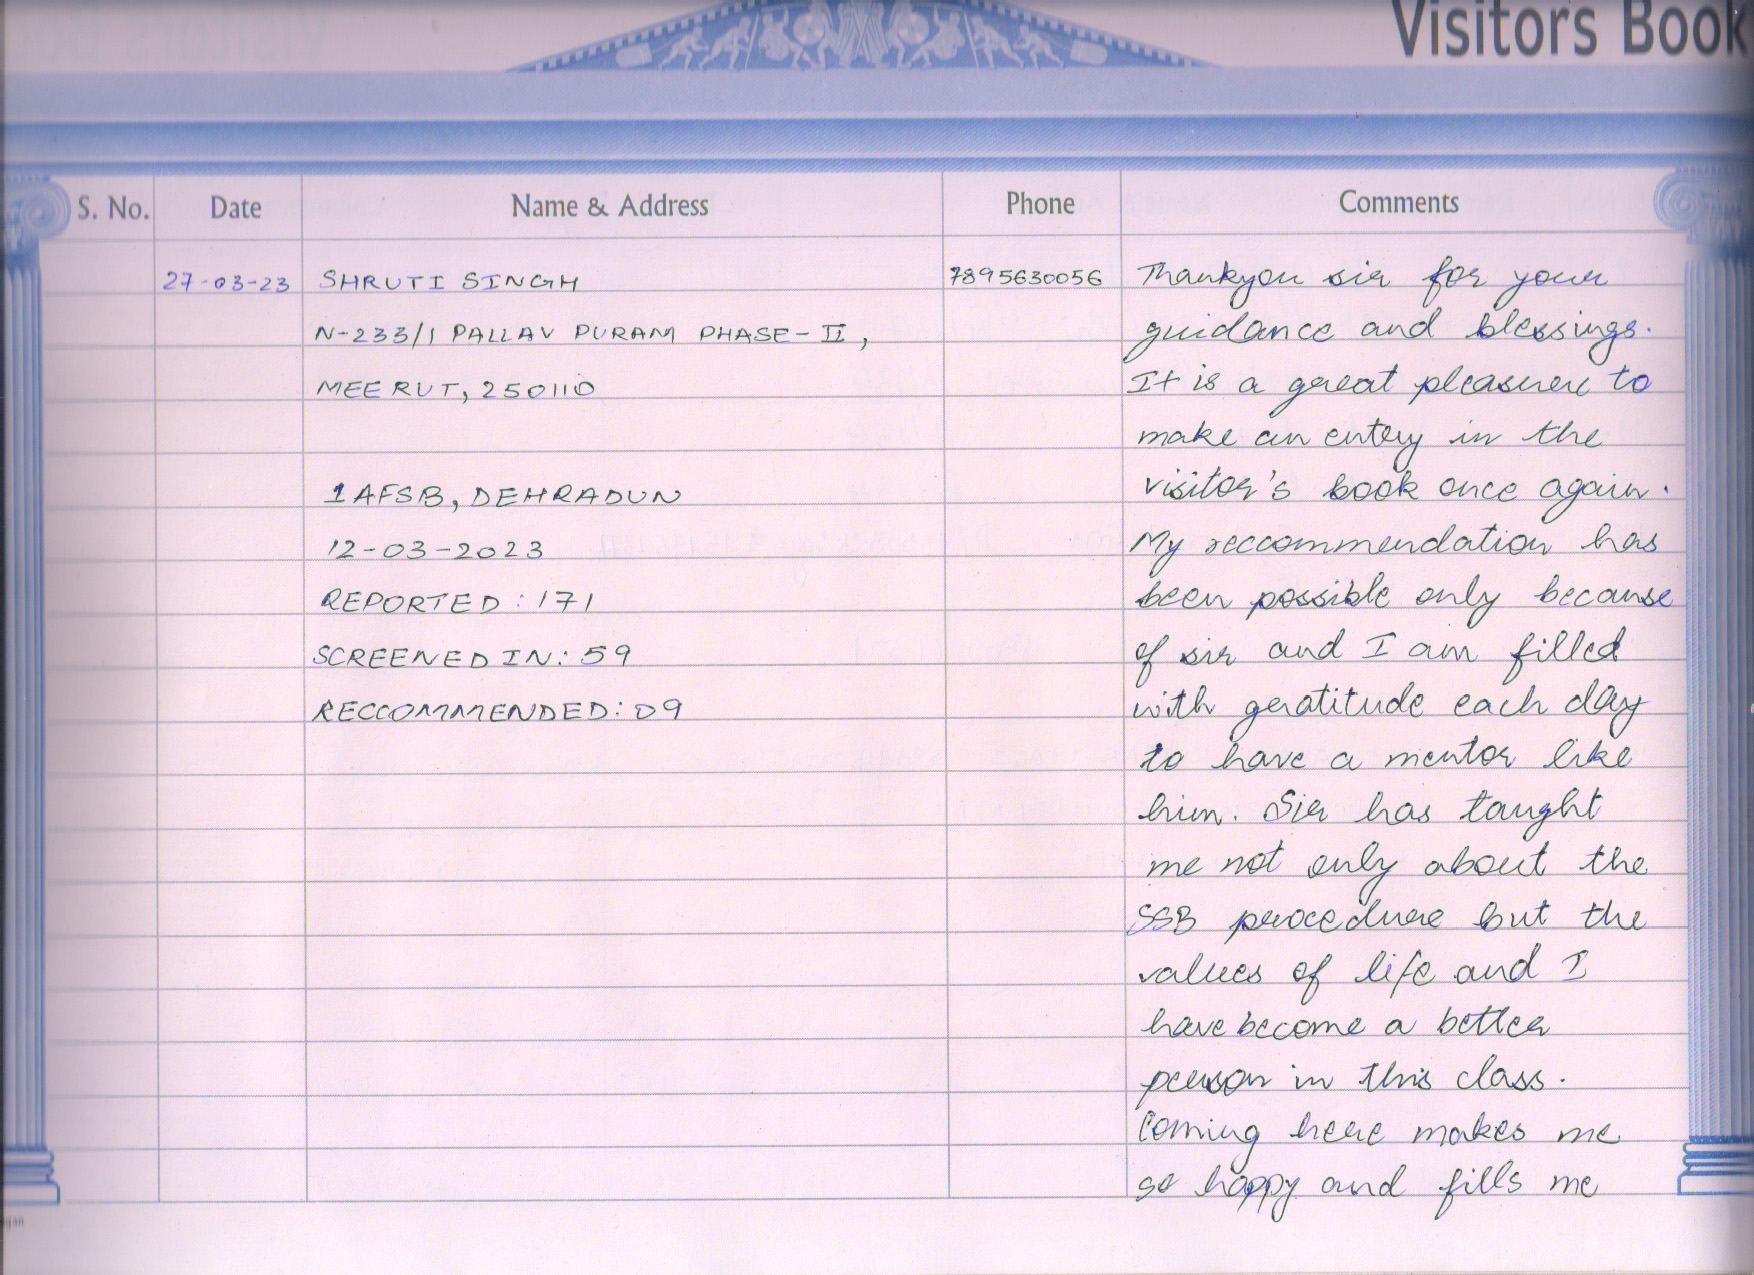 Visitors Book
S. No. Date Name & Address Phone Comments
27-03-23 SHRUTI SINGH 7895630056 Thankyou sir for your
N-233/1 PALLAV PURAM PHASE-II, guidance and blessings.
MEERUT, 250110 It is a great pleasure to
make an entry in the
1 AFSB, DEHRADUN visitor's book once again.
12-03-2023 My reccommendation has
REPORTED: 171 been possible only because
SCREENED IN: 59 of sir and I am filled
RECCOMMENDED: 09 with gratitude each day
to have a mentor like
him. Sir has taught
me not only about the
SSB procedure but the
values of life and I
have become a better
person in this class.
Coming here makes me
so happy and fills me